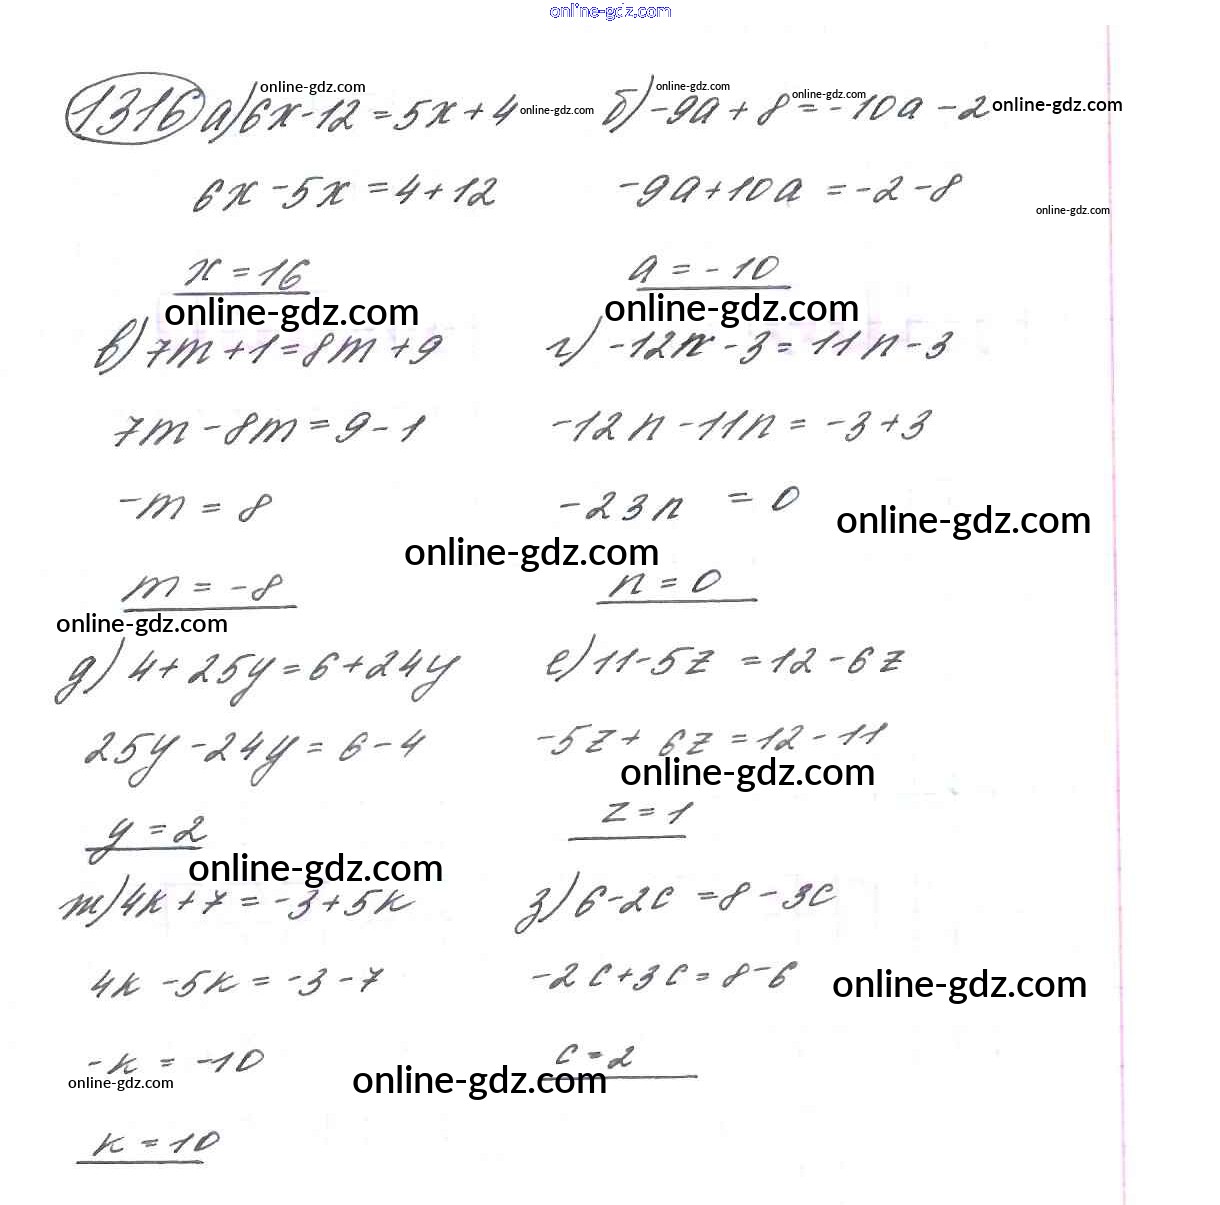 online-gdz.com
1316 а) 6x - 12 = 5x + 4 б) -9a + 8 = -10a - 2
online-gdz.com online-gdz.com online-gdz.com online-gdz.com online-gdz.com
6x - 5x = 4 + 12 -9a + 10a = -2 - 8
online-gdz.com
x = 16 a = -10
online-gdz.com online-gdz.com
в) 7m + 1 = 8m + 9 г) -12n - 3 = 11n - 3
7m - 8m = 9 - 1 -12n - 11n = -3 + 3
-m = 8 -23n = 0
online-gdz.com
online-gdz.com
m = -8 n = 0
online-gdz.com
д) 4 + 25y = 6 + 24y е) 11 - 5z = 12 - 6z
25y - 24y = 6 - 4 -5z + 6z = 12 - 11
online-gdz.com
y = 2 z = 1
online-gdz.com
ж) 4k + 7 = -3 + 5k з) 6 - 2c = 8 - 3c
4k - 5k = -3 - 7 -2c + 3c = 8 - 6
online-gdz.com
-k = -10 c = 2
online-gdz.com online-gdz.com
k = 10